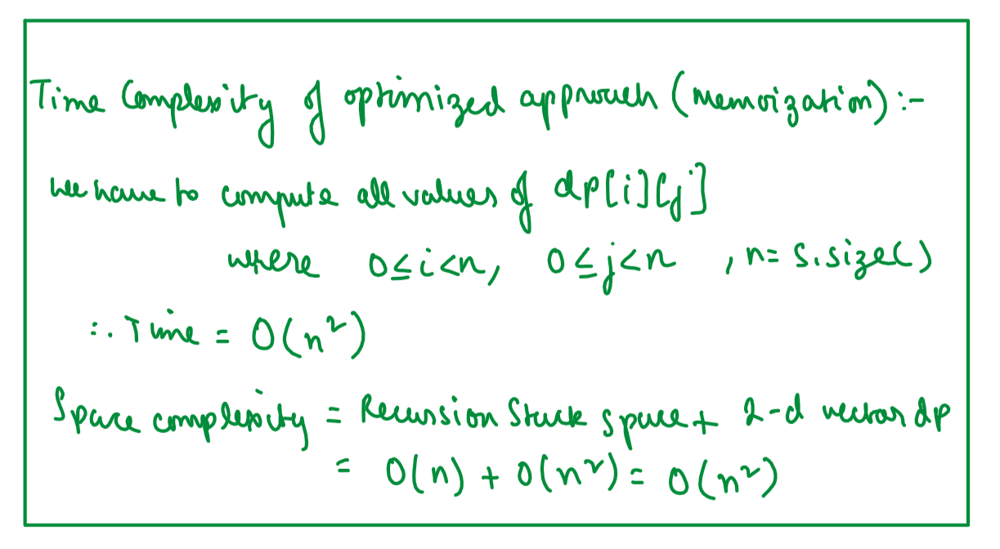 Time Complexity of optimized approach (memoization) :-
We have to compute all values of dp[i][j]
where 0≤i<n, 0≤j<n , n= s.size()
∴ Time = O(n²)
Space complexity = Recursion Stack space + 2-d vector dp
= O(n) + O(n²) = O(n²)